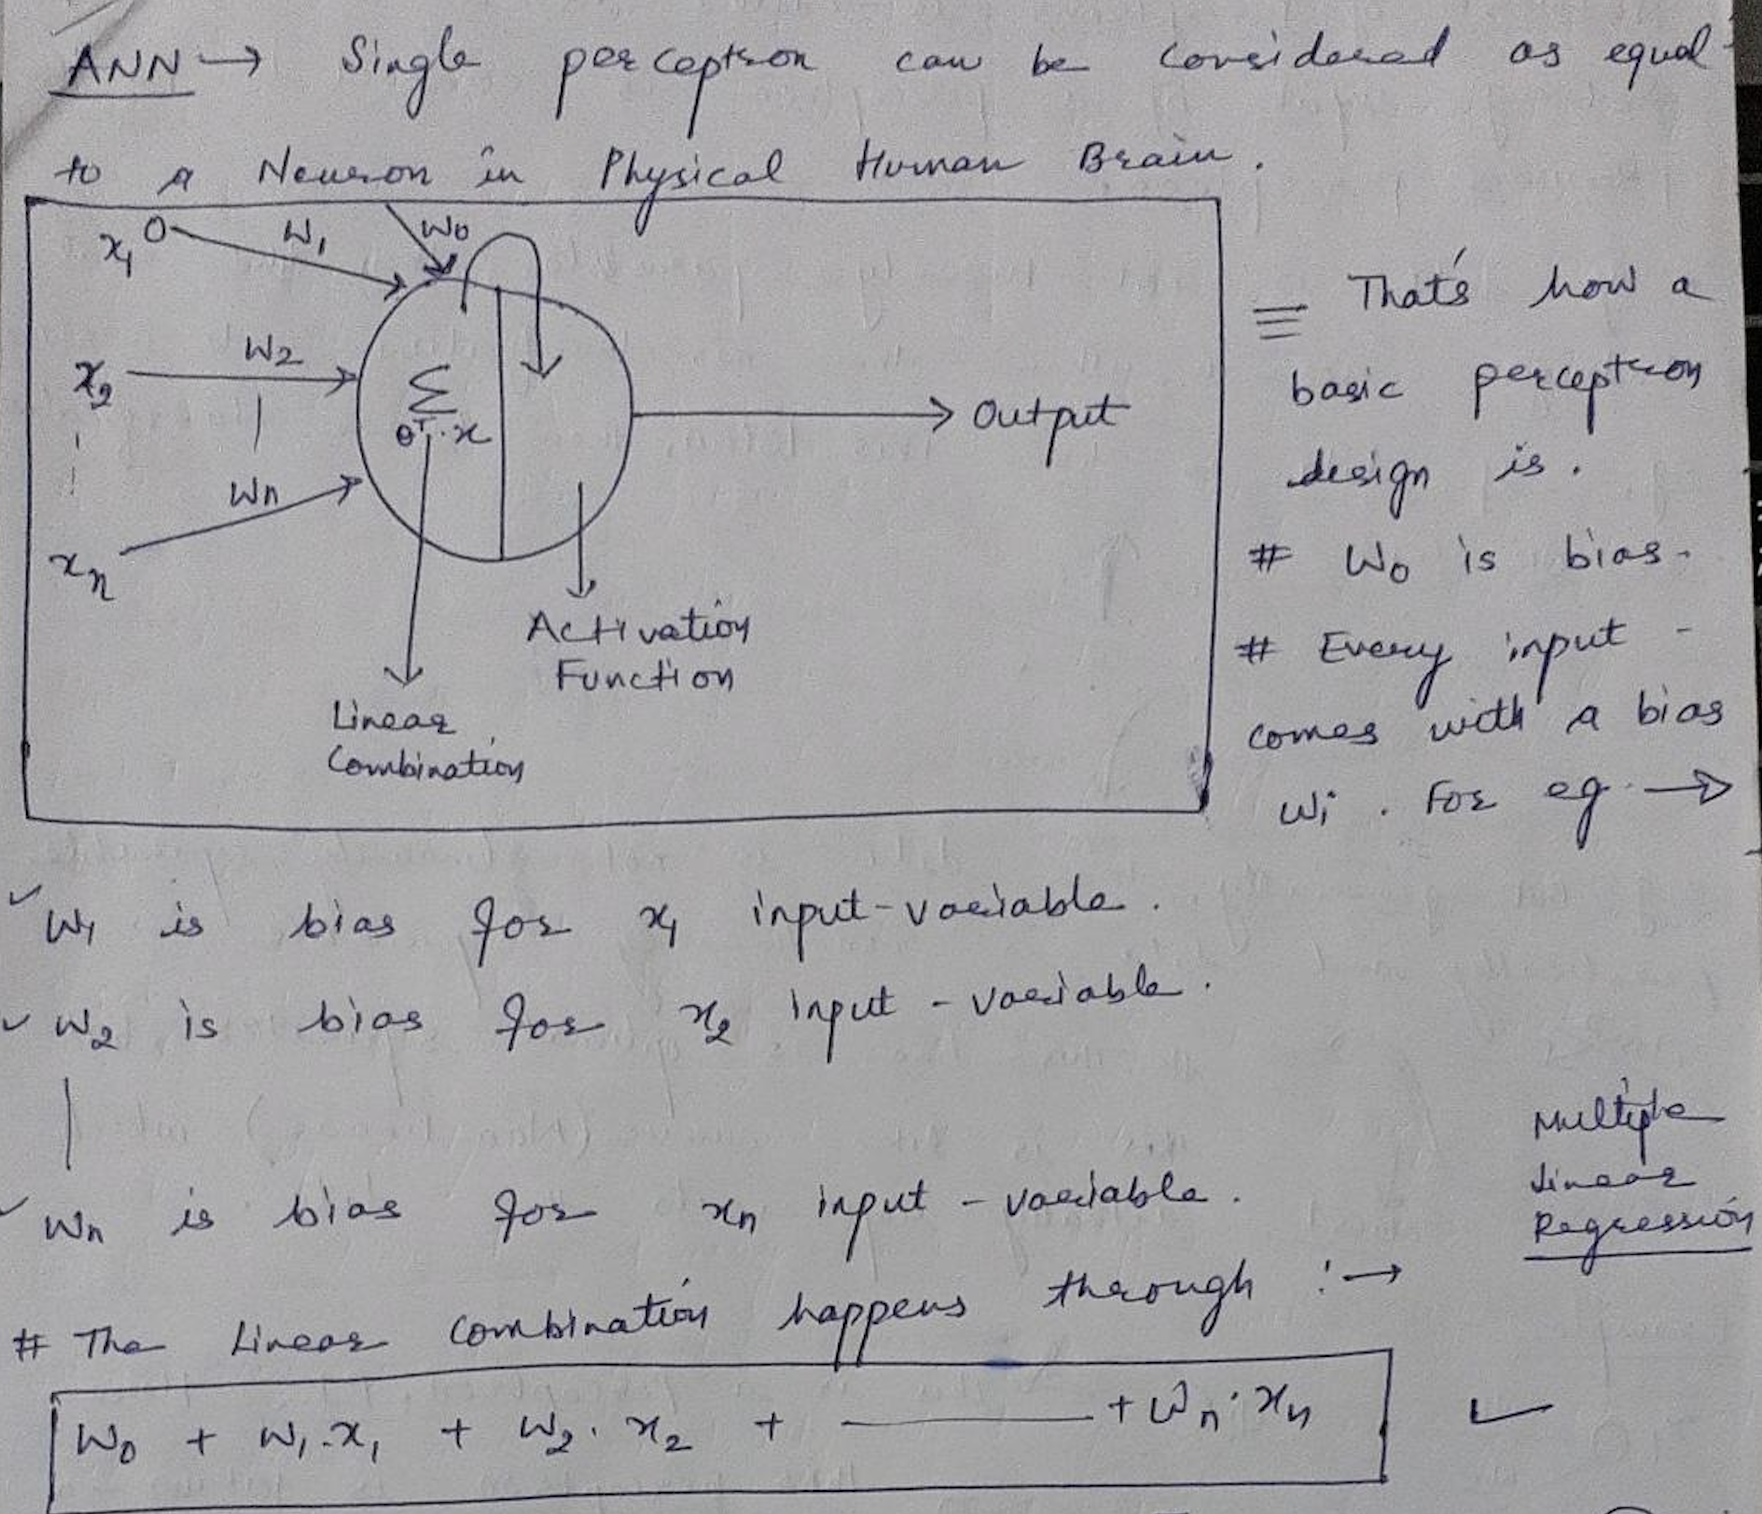 ANN → Single perceptron can be considered as equal
to a Neuron in Physical Human Brain.
x₁ W₁ W₀
x₂ W₂
Σ
θᵀ·x
→ Output
Wn
xn
Activation
Function
Linear
Combination
≡ That's how a
basic perceptron
design is.
# W₀ is bias.
# Every input -
comes with a bias
Wi. For eg →
✓ W₁ is bias for x₁ input-variable.
✓ W₂ is bias for x₂ input-variable.
|
✓ Wn is bias for xn input-variable.
Multiple
Linear
Regression
# The Linear combination happens through :→
W₀ + W₁.x₁ + W₂.x₂ + ——— + Wn.xn ✓